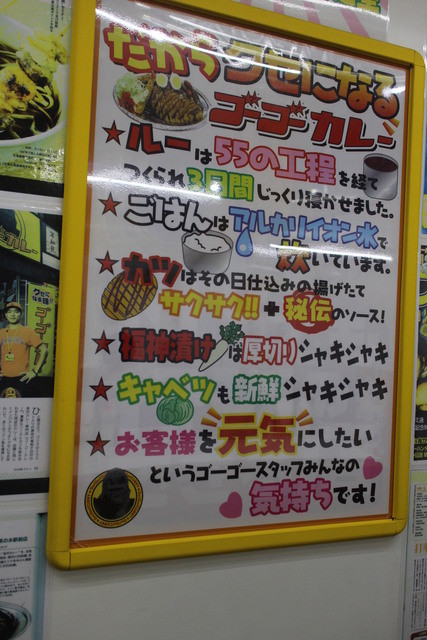 だからクセになる
ゴーゴーカレー
★ルーは55の工程を経て
つくられ3日間じっくり寝かせました。
★ごはんはアルカリイオン水で
炊いています。
★カツはその日仕込みの揚げたて
サクサク!!+秘伝のソース!
★福神漬けは厚切りシャキシャキ
★キャベツも新鮮シャキシャキ
★お客様を元気にしたい
というゴーゴースタッフみんなの
気持ちです!